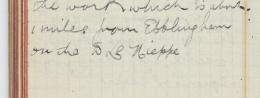 the work which is about
1 miles from Ebblinghem
on the B L Nieppe